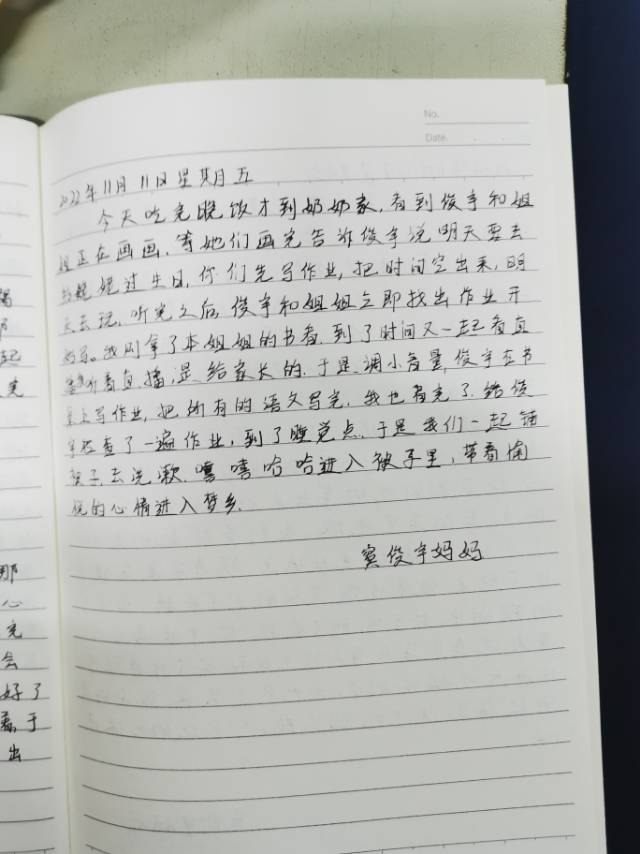 No.
Date.
2022年11月11日星期五
今天吃完晚饭才到奶奶家,看到俊宇和姐
姐正在画画,等她们画完告诉俊宇说明天要去
姥姥过生日,你们先写作业,把时间空出来,明
天去玩,听完之后,俊宇和姐姐立即找出作业开
始写。我则拿了本姐姐的书看,到了时间又一起看直
听着直播,是给家长的,于是调小音量,俊宇在书
桌上写作业,把所有的语文写完,我也看完了,给俊
宇检查了一遍作业,到了睡觉点,于是我们一起铺
被子,去洗漱,嘻嘻哈哈进入被子里,带着愉
悦的心情进入梦乡.
窦俊宇妈妈
那
起
完
那
心
完
会
好了
于
出